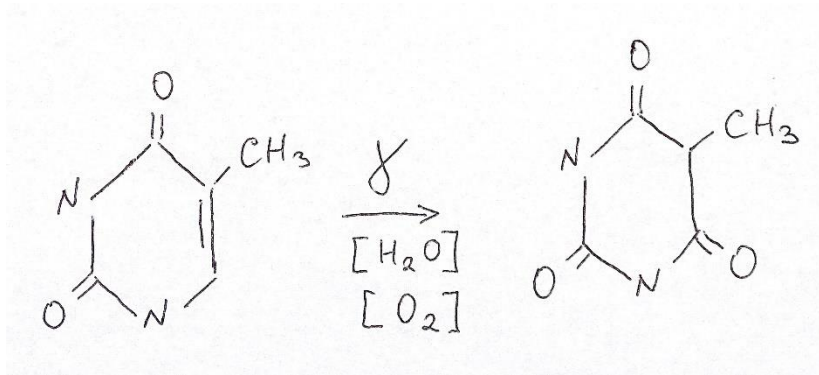 O
CH₃
N
O
N
γ
[H₂O]
[O₂]
O
CH₃
N
O
N
O